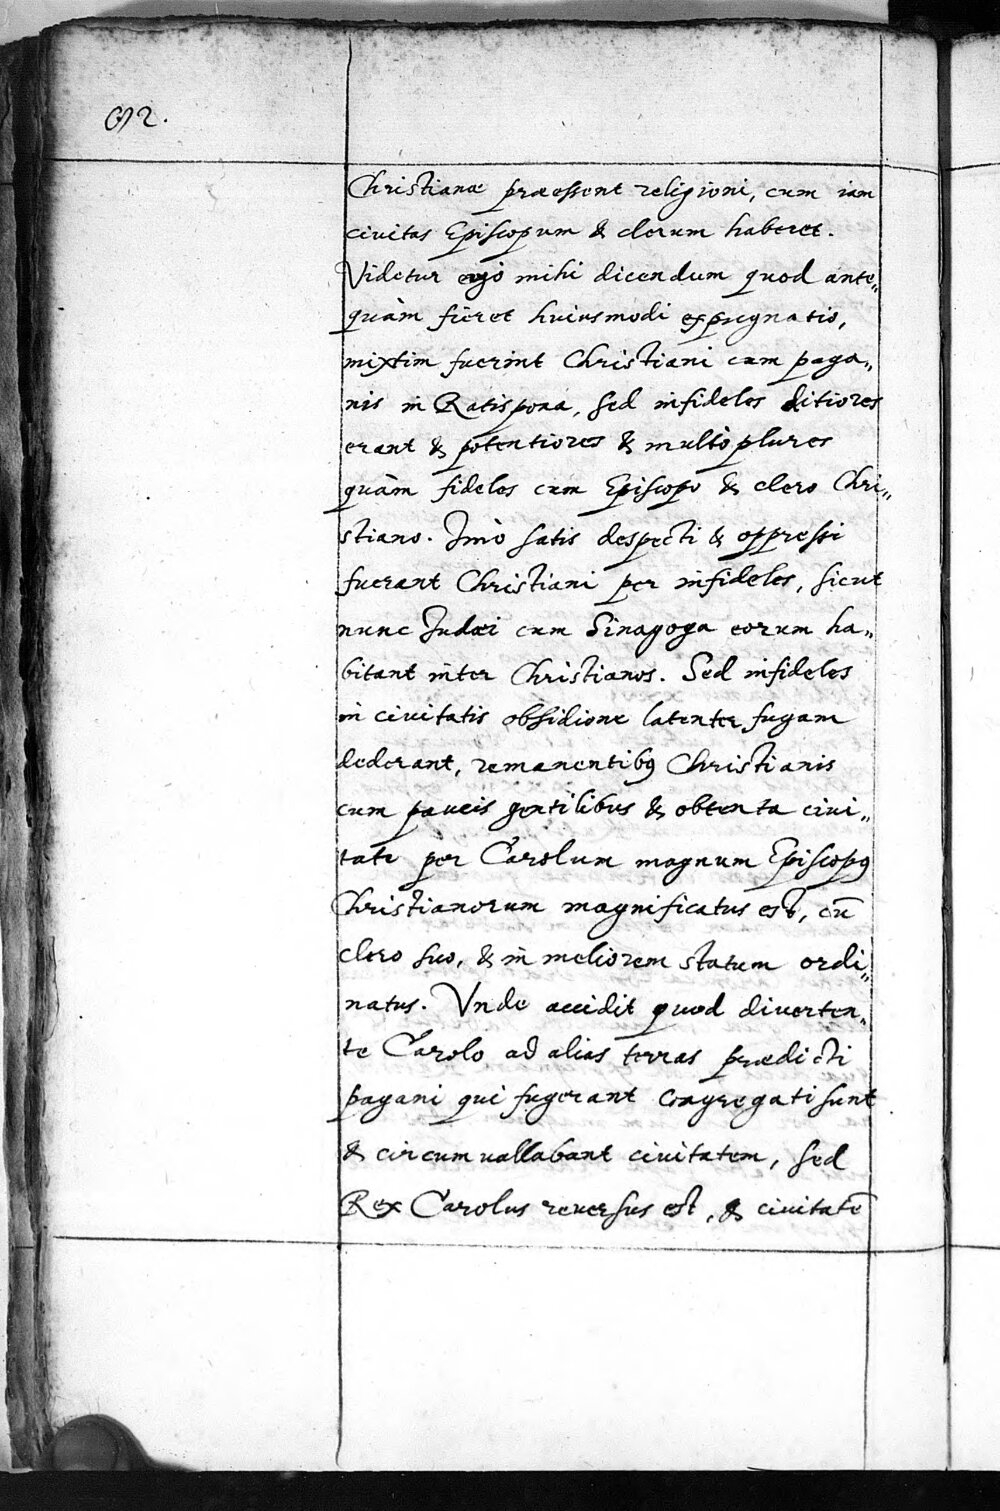 92.
Christianæ præessent religioni, cum iam
ciuitas Episcopum & clerum haberet.
Videtur ergo mihi dicendum quod ante„
quàm fieret huiusmodi expugnatio,
mixtim fuerint Christiani cum paga„
nis in Ratispona, sed infideles ditiores
erant & potentiores & multò plures
quàm fideles cum Episcopo & clero Chri„
stiano. Imò satis despecti & oppressi
fuerant Christiani per infideles, sicut
nunc Judæi cum Sinagoga eorum ha„
bitant inter Christianos. Sed infideles
in ciuitatis obsidione latenter fugam
dederant, remanentibꝰ Christianis
cum paucis gentilibus & obtenta ciui„
tate per Carolum magnum Episcopꝰ
Christianorum magnificatus est, cū
clero suo, & in meliorem statum ordi„
natus. Vnde accidit quod diuerten„
te Carolo ad alias terras prædicti
pagani qui fugerant congregati sunt
& circumuallabant ciuitatem, sed
Rex Carolus reuersus est, & ciuitatē